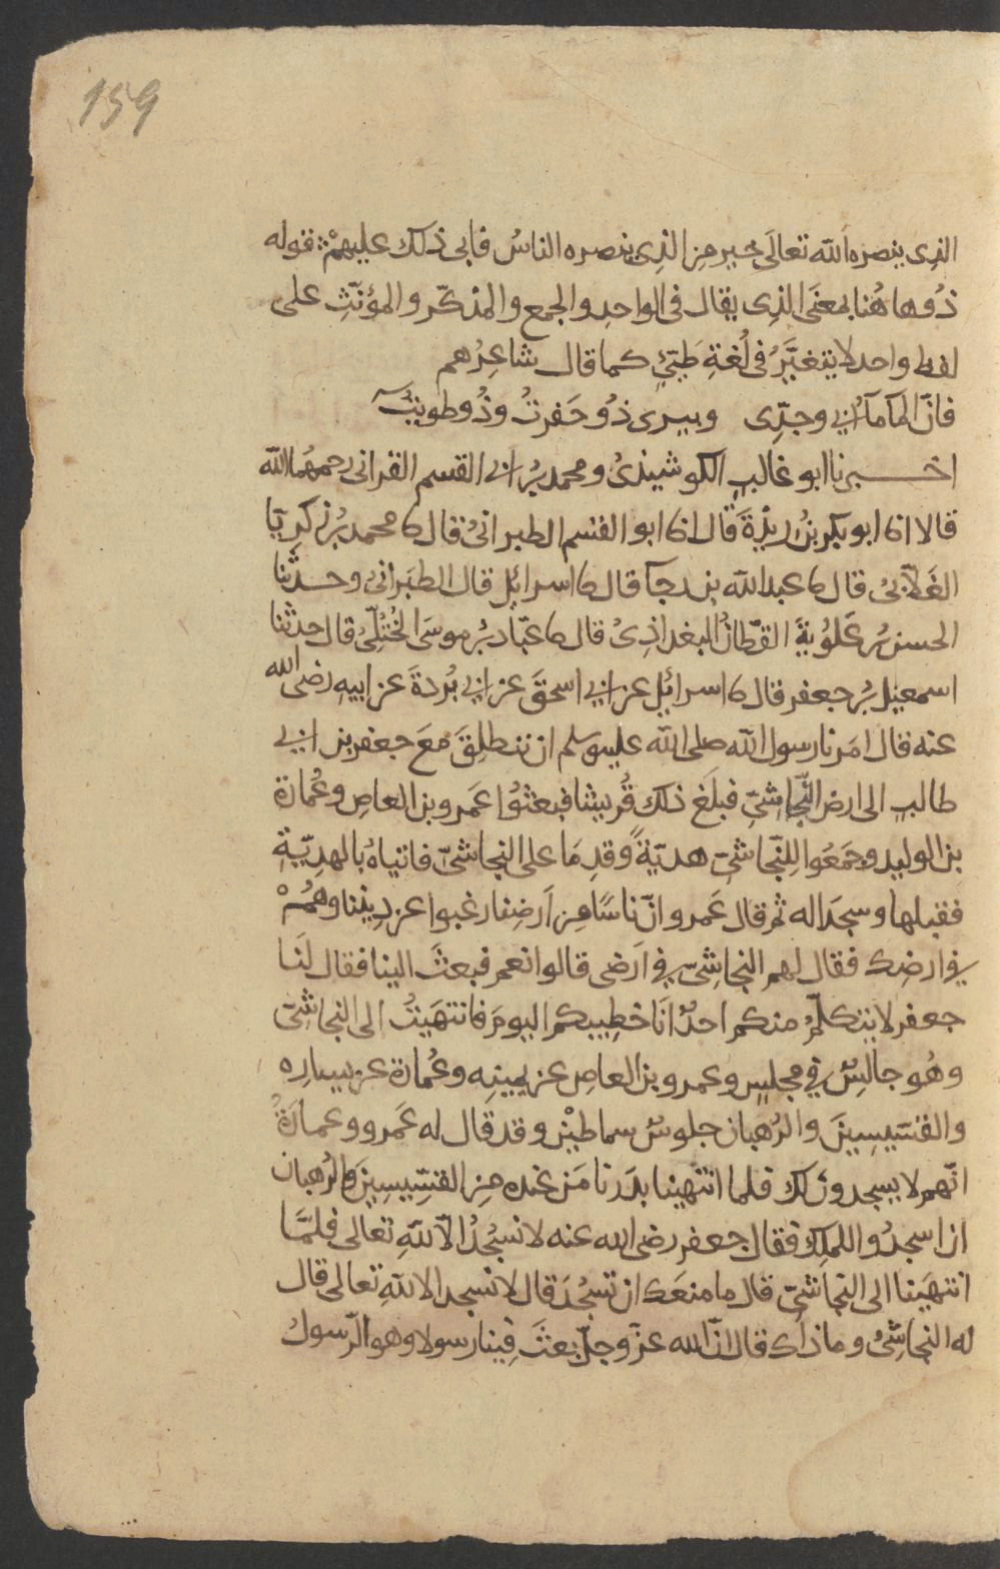 159
الذى ينصره الله تعالَى خير من الذى ينصره الناسُ فابى ذلك عليهمْ ؞ قوله
ذُو هاهُنا بمعنَى الذى يقال فى الواحد والجمع والمذكّر والمؤنّثِ على
لفظ واحد لا يتغيَّرُ فى لُغةِ طيّئٍ كما قال شاعِرُهم
فانّ المآ مآ ابى وجدّى وبيرى ذُو حَفرتُ وذُو طويتُ
اخــــبرنا ابو غالبٍ الكوشيذىُ ومحمد بن ابى القسم القرانى رحمهُما الله
قالا انا ابو بكر بنُ ريذةَ قال انا ابو القسم الطبرانىُ قال نا محمد بنُ زكرِيّا
الغَلّابىُ قال نا عبدالله بن رجآ قال نا اسرائِل قال الطبَرانىُ وحــدثنا
الحسن بن عَلوُيةَ القطّانُ البغداذِىُ قال نا عبّاد بنُ موسَى الخُتُلّىُ قال حدثنا
اسمعيل بنُ جعفر قال نا اسرائيل عن ابى اسحقَ عن ابى بُردةَ عن ابيهِ رضى الله
عنه قال امَرنا رسول الله صلى الله عليه وسلم ان ننطلِقَ معَ جعفر بن ابى
طالبٍ الى ارض النّجاشىّ فبلَغ ذلك قُريشًا فبعثوُا عَمرو بن العاصِ وعُمارة
بن الوليد وجمَعُوا للِنّجاشىّ هديّةً وقدِمَا على النجاشىّ فاتياهُ بالهدِيّةِ
فقبلها وسجدَا له ثم قال عَمرو انّ ناسًا من اَرضِنا رغبوا عن دِيننا وهُمْ
فى ارضِك فقال لهم النجاشِىّ فى اَرضى قالوا نعم فبعثَ الينا فقال لَنا
جعفر لا يتكلّمْ منكم احدٌ انَا خطِيبكم اليومَ فانتهَيتُ الى النجاشِىّ
وهُو جالسٌ فى مجلسٍ وعمرو بن العاصِ عن يمينِه وعُمارة عن يساره
والقسّيسِينَ والرُهبان جلوسٌ سماطيْن وقد قال له عَمرو وعمارَةُ
انّهم لا يسجدونَ لكَ فلما انتهينا بدَرنا مَن عنده مِن القسّيسِينَ والرُهبان
ان اسجدُوا للملِكِ فقال جعفر رضى الله عنه لا نسْجُدُ الّا للهِ تعالى فلمَّا
انتهَينا الى النجاشىّ قال ما منعَك ان تسجُدَ قال لا نسجد الا للهِ تعالى قال
له النجاشىُ وما ذاك قال انّ الله عزّ وجلّ بعثَ فِينا رسولا وهو الرّسولُ